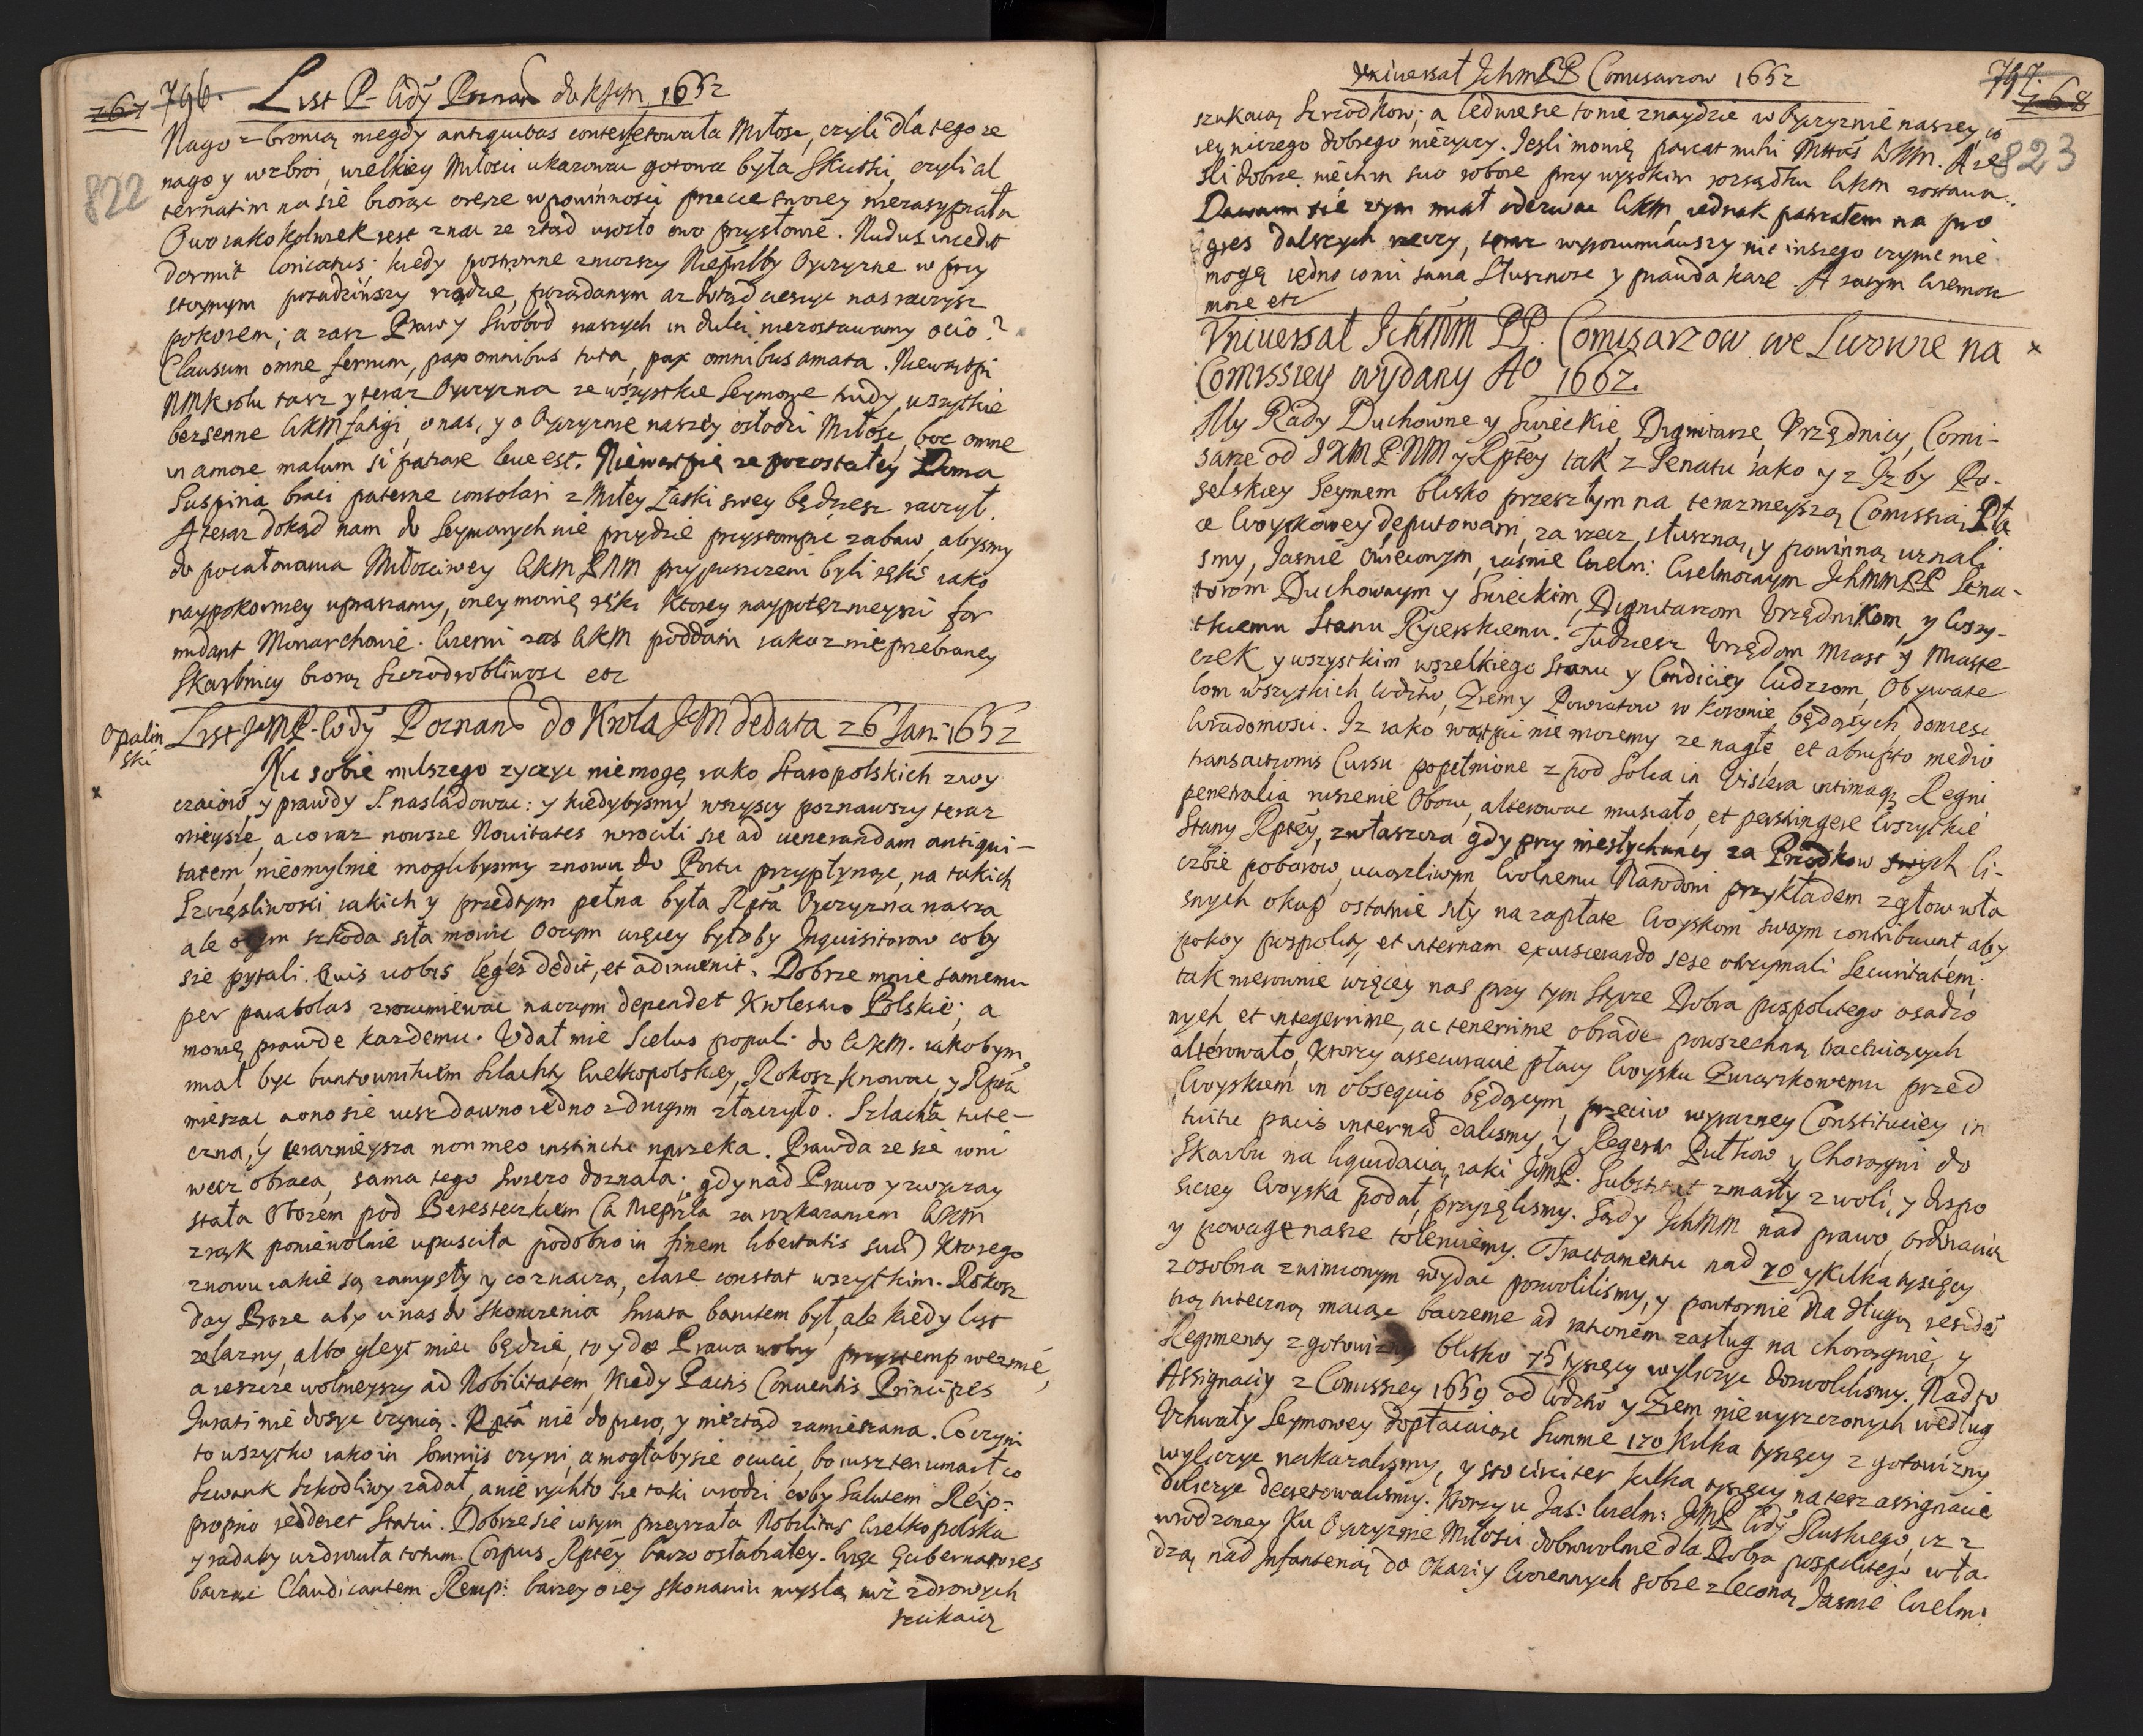 267 796. List P. Wdy Poznań do KJeM 1652
822
Nago z bronią niegdy antiquitas conterfetowała Miłosc, czyli dla tego ze
nago y w zbroi, wielkiey Miłosci ukazowac gotowa była Skutki, czyli al
ternatim na się biorąc oręze w powinnosci przecie swoiey nie zasypiała
Owo iako kolwiek iest znac ze ztąd urosło owo przysłowie. Nudus incedit
dormit loricatus; kiedy postronne zniozszy Nieprlby Oyczyzne w przy
stoynym posadziwszy rządzie, pożądanym az dotąd cieszyc nas raczysz
pokoiem; a zasz Praw y Swobod naszych in dulci niezostawamy ocio?
Clausum omne ferrum, pax omnibus tuta, pax omnibus amata. Niewątpi
NMKrolu tasz y teraz Oyczyzna ze wszystkie Seymowe trudy, wszytkie
bezsenne WKM fatigi, o nas, y o Oyczyznie naszey osłodzi Miłosc, boc omne
in amore malum si patiare leue est. Niewątpię ze pozostałey Domu
Suspiria braci paterne consolari z Miłey Łaski swey będziesz raczył.
A teraz dokąd nam do Seymowych nie przydzie przystąmpic zabaw, abysmy
do pocałowania Miłosciwey WKM PNM przypuszczeni byli rękię iako
naypokorniey upraszamy, oney mowię ręki ktorey naypotęznieysi for
midant Monarchowie. Wierni zas WKM poddani iako z nieprzebraney
Skarbnicy biorą Szczodrobliwosc etc
Opalin
ski
List JeMP. Wdy Poznan do Krola JeM de data 26 Jan: 1652
Nic sobie milszego zyczyc niemogę iako Staropolskich zwy
x
czaiow, y prawdy S. nasladowac: y kiedybysmy wszyscy poznawszy teraz
nieysze, a coraz nowsze Nouitates wrocili się ad uenerandam antiqui-
tatem, nieomylnie moglibysmy znowu do Portu przypłynąc, na takich
Szczęsliwosci iakich y przedtym pełna była Rpta Oyczyzna nasza
ale o tym szkoda siła mowic Oczym więcey byłoby Inquisitorow coby
się pytali. Quis uobis leges dedit, et adinuenit. Dobrze mnie samemu
per parabolas zrozumiewac naczym dependet Krolestwo Polskie; a
mowię prawde kazdemu. Udał mie Scelus populi do WKM. iakobym
miał byc buntownikiem Szlachty Wielkopolskiey, Rokosz knowac, y Rptą
mieszac aono się iusz dawno iedno z drugim złączyło. Szlachta tute-
czna, y teraznieysza non meo instinctu narzeka. Prawda ze się w ni
wecz obraca, sama tego swiezo doznała; gdy nad Prawo y zwyczay
stała Obozem pod Beresteczkiem (a Nieprla za rozkazaniem WKM
z rąk poniewolnie upusciła podobno in finem libertatis suae) ktorego
znowu iakie są zamysły y co znaczą, clare constat wszytkim. Rokosz
day Boze aby u nas do skonczenia swiata banitem był, ale kiedy list
zelazny, albo gleyt miec będzie, to y do Prawa wolny przystemp wezmie,
a ieszcze wolnieyszy ad Nobilitatem, kiedy Pactis Conuentis Principes
Jurati nie dosyc czynią. Rpta nie dopiero, y nieztąd zamieszana. Co czyni
to wszytko iako in somniis czyni, a mogłaby się ocucic, bo iusz ten umarł co
Szwank szkodliwy zadał, a nie rychło się taki urodzi coby Salutem Reip.
proprio redderet Statui. Dobrze się w tym przeyrzała Nobilitas Wielkopolska
y radaby uzdrowiła totum Corpus Rptey barzo osłabiałey. Więc Gubernatores
bacząc Claudicantem Remp: barzey o iey skonaniu myslą niz zdrowych
szukaią
Vniuersał JchmPP Comisarzow 1652
797. 268
823
szukaią Szrzodkow; a ledwie się to nie znaydzie w Oyczyznie naszey co
iey niczego dobrego nieżyczy. Jesli mowię, parcat mihi Mttas WKM. A ze
sli dobrze niech in suo robore przy wysokim rozsądku WKM zostawa.
Dawnom się z tym miał oderwac WKM, iednak patrzałem na pro
gres dalszych rzeczy, teraz wyrozumiawszy nic inszego czynic nie
mogę iedno co mi sama Słusznosc y prawda kaze. A zatym wiernosc
moie etc
Vniuersał Jchmm PP. Comisarzow we Lwowie na x
Comissiey wydany Ao 1662.
My Rady Duchowne y Swieckie, Dignitarze, Vrzędnicy, Comi-
sarze od JKM PNM y Rptey tak z Senatu iako y z Jzby Po-
selskiey Seymem blisko przeszłym na terazmeyszą Comissią, Pła
ce Woyskowey deputowani, za rzecz słuszną, y powinną uznali
smy, Jasnie Oswieconym, iasnie Wielm: Wielmoznym JchmmPP Sena-
torom Duchownym y Swieckim, Dignitarzom Vrzędnikom y wszy-
tkiemu Stanu Rycerskiemu. Tudziesz Vrzędom Miast y Miaste
czek y wszystkim wszelkiego Stanu y Condiciey ludziom, Obywate
lom wszytkich Wdztw, Ziemy Powiatow w Koronie będących, doniesc
Wiadomosci. Iz iako wątpic nie mozemy ze nagłe et abrupto medio
transactionis Cursu popełnione z pod Solca in Viscera intimaq Regni
penetralia ruszenie Obozu, alterowac musiało, et perstringere wszytkie
Stany Rptey, zwłaszcza gdy przy niesłychaney za Przodkow swych li-
czbie poborow, uciązliwym wolnemu Narodowi przykładem z głow wła
snych okup ostatnie siły na zapłate Woyskom swoym contribuunt aby
pokoy pospolity, et internam exuiscerando sese otrzymali Securitatem;
tak nierownie więcey nas przy tym Styrze Dobra pospolitego osadzo
nych, et integerrime, ac tenerrime obrade powszechną tractuiących
alterowało, ktorzy assecuracie płacy Woysku Zwiąszkowemu przed
Woyskiem in obsequio będącym, przeciw wyrazney Constituciey in
tuitu pacis internae dalismy, y Regestr Pułkow y Chorągwi do
Skarbu na liquidacią iaki JemP. Substitut zmarły z woli, y dispo
siciey Woyska podał, przyięlismy. Sądy Jchmm nad prawo, ordinacią
y powagę nasze tolerniemy. Tractamentu nad 70 y kilka tysięcy
zosobna z winionym wydac pozwolilismy, y powtornie na długą residę
tią tuteczną maiąc baczenie ad rationem zasług na chorągwie, y
Regimenty z gotowizny blisko 75 tysięcy wyliczyc dozwolilismy. Nad to
Assignaciy z Comissiey 1659 od Wdztw y Ziem nieuyszczonych według
Vchwały Seymowey dopłacaiąc Summe 170 kilka tysięcy z gotowizny
wyliczyc nakazalismy, y sto circiter kilka tysięcy na tesz assignacie
doliczyc decretowalismy. Ktorzy u Jas: Wielm: JemP Wdy Ruskiego, iz z
wrodzoney ku Oyczyznie Miłosci dobrowolnie dla Dobra pospolitego wła
dzą nad Infanterią do Okaziy Woiennych sobie zleconą Jasnie Wielm: